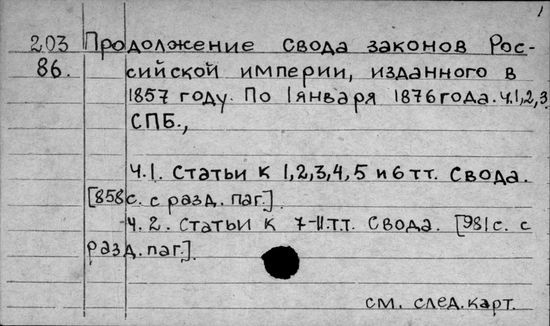 1
203 Продолжение свода законов Рос-
86. сийской империи, изданного в
1857 году. По 1 января 1876 года. Ч.1,2,3
СПБ.,
Ч.1. Статьи к 1,2,3,4,5 и 6 тт. Свода.
[858 с. с разд. паг.].
Ч.2. Статьи к 7-11.т.т. Свода. [981 с. с
разд. паг.].
см. след. карт.